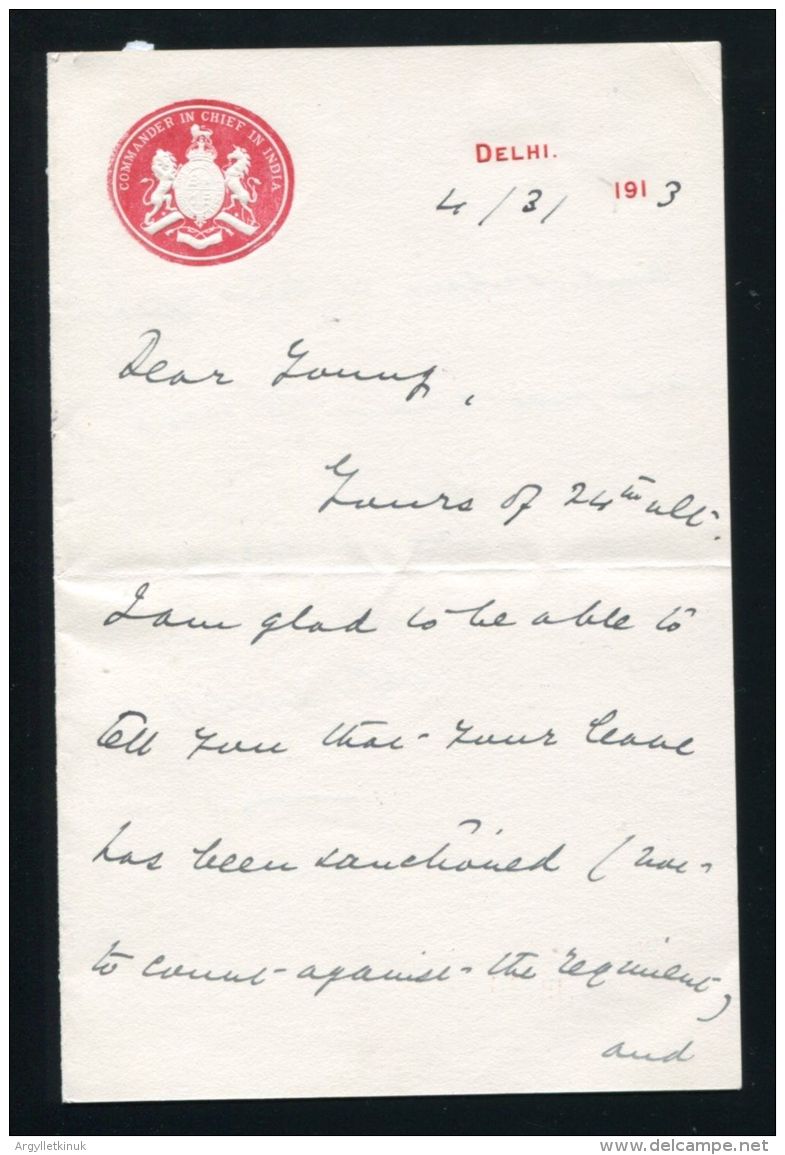 COMMANDER IN CHIEF IN INDIA
DELHI.
4/3/ 1913
Dear Young,
Yours of 24th ult.
I am glad to be able to
tell you that your leave
has been sanctioned (not
to count against the regiment)
and
Argylletkinuk
delcampe.net